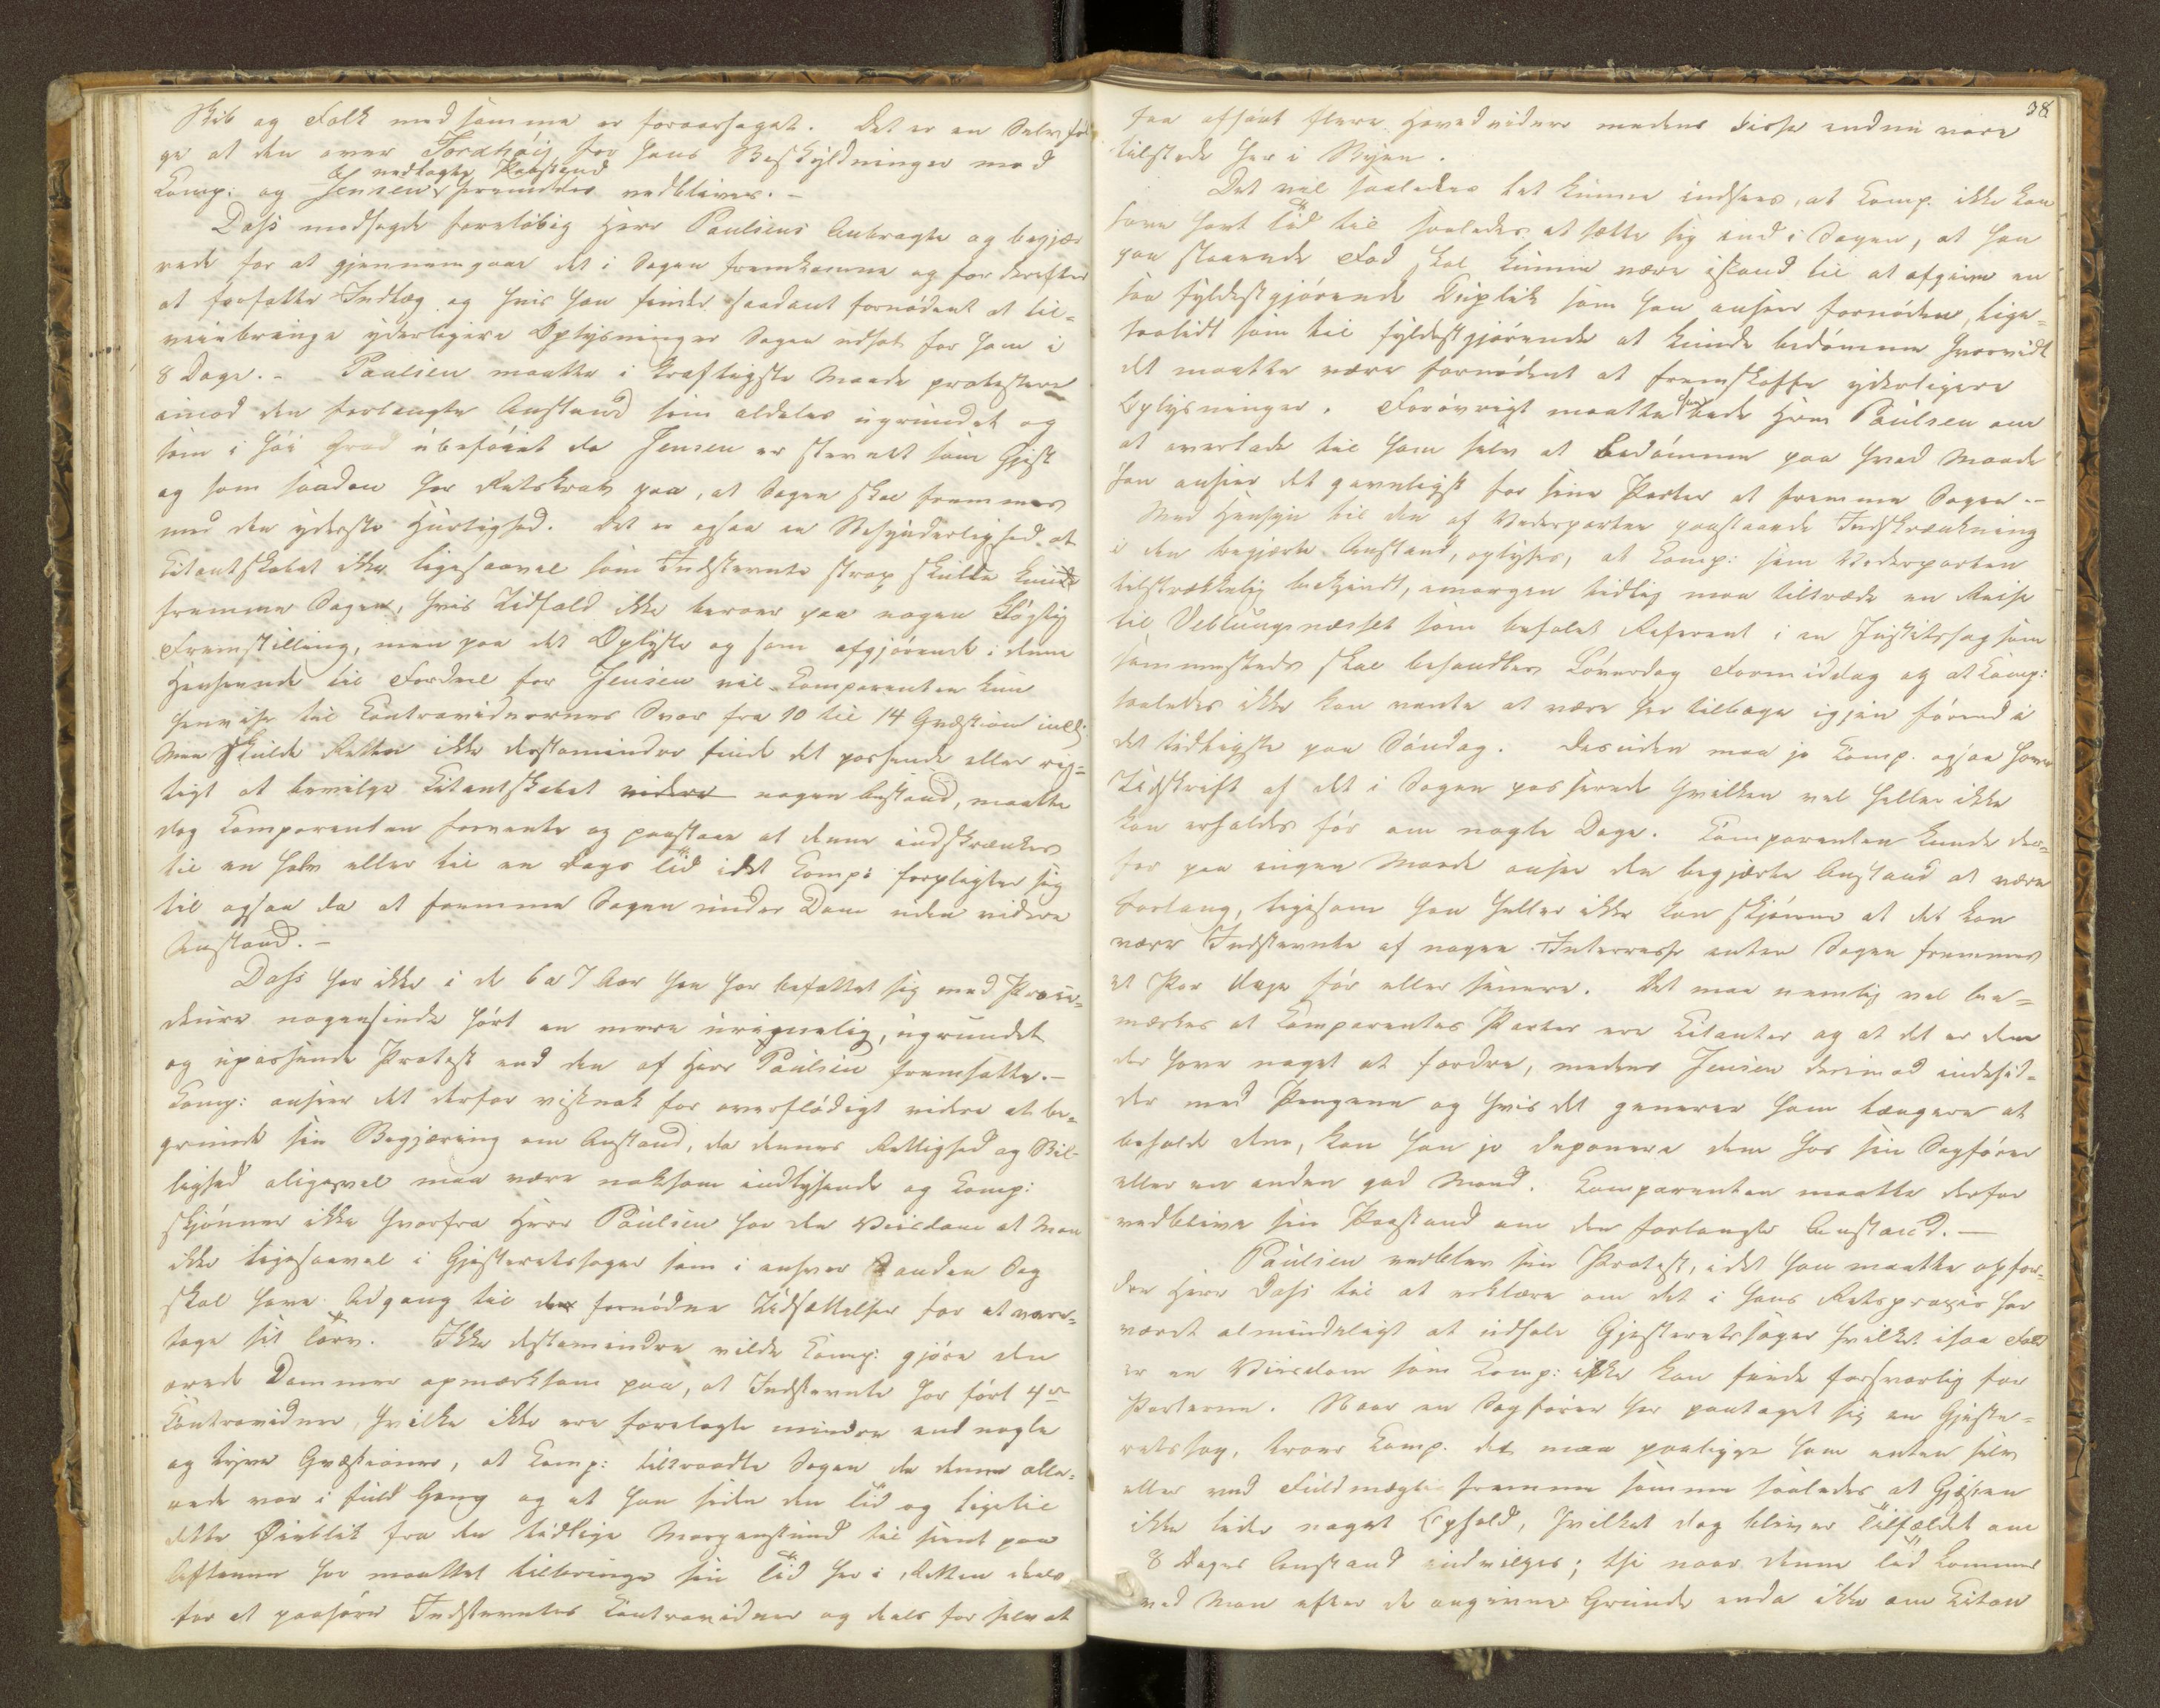 Skib og Folk med samme er foraarsaget. Det er en Selvføl
ge at den over Tordhøij for hans Beskyldninger mod
nedlagte Paastand
Comp: og Jensen fremdeles vedblives. -
Dass modsagde foreløbig Herr Paulsens Anbragte og begjær
rede for at gjennemgaae det i Sagen fremkomne og for derefter
at forfatte Indlæg og hvis han finder saadant fornødent at til=
veiebringe yderligere Oplysninger Sagen udsat for ham i
8 Dage. - Paulsen maatte i kraftigste Maade protestere
imod den forlangte Anstand som aldeles ugrundet og
som i høi Grad ubeføiet da Jensen er stevnet som Gjest
og som saadan har Retskrav paa, at Sagen skal fremmes
med den yderste Hurtighed. Det er ogsaa en Besynderlighed at
Citantskabet ikke ligesaavel som Indstevnte strax skulde kunde
fremme Sagen, hvis Udfald ikke beroer paa nogen kløgtig
Fremstilling, men paa det Oplyste og som afgjørende i denne
Henseende til Fordeel for Jensen vil Comparenten kun
henvise til Contravidnernes Svar fra 10 til 14 Qvæstion incl:
Men skulde Retten ikke destomindre finde det passende eller rig=
tigt at bevilge Citantskabet videre nogen Anstand, maatte
dog Comparenten formente og paastaae at denne indskrænkes
til en halv eller til en Dags Tid idet Comp: forpligter sig
til ogsaa da at fremme Sagen under Dom uden videre
Anstand. -
Dass har ikke i de 6 a 7 Aar han har befattet sig med Proce=
deure nogensinde hørt en mere urigmelig, ugrundet
og upassende Protest end den af Herr Paulsen fremsatte. -
Comp: anseer det derfor vistnok for overflødigt videre at be=
grunde sin Begjæring om Anstand, da dennes Rettighed og Bil-
lighed aligevel maa være noksom indlysende og Comp:
skjønner ikke hvorfra Herr Paulsen har den Viisdom at Man
ikke ligesaavel i Gjesteretssager som i enhver anden Sag
skal have Adgang til den fornødne Udsættelser for at vare=
tage sit Tarv. Ikke destomindre vilde Comp: gjøre den
ærede Dommer opmærksom paa, at Indstevnte har ført 4re
Contravidner, hvilke ikke ere forelagte mindre end nogle
og tyve Qvæstioner, at Comp: tiltraadte Sagen da denne alle=
rede var i fuld Gang og at han siden den Tid og ligetil
dette Øieblik fra den tidlige Morgenstund til sent paa
Aftenen har maattet tilbringe sin Tid her i Retten deels
for at paahøre Indstevntes Contravidner og deels for selv at
38
faa afhørt flere Hovedvidner medens disse endnu vare
tilstede her i Byen.
Det vil saaledes let kunne indsees, at Comp. ikke kan
have havt Tid til saaledes at sætte sig ind i Sagen, at han
paa staaende Fod skal kunne være istand til at afgive en
saa fyldestgjørende Duplik som han anseer fornøden, lige=
saalidt som til fyldestgjørende at kunde bedømme hvorvidt
det maatte være fornødent at fremskaffe yderligere
Oplysninger. Forøvrigt maatte han bede Herr Paulsen om
at overlade til ham selv at bedømme paa hvad Maade
han anseer det gavnligst for sine Parter at fremme Sagen. -
Med Hensyn til den af Vederparten paastaaede Indskrænkning
i den begjærte Anstand, oplyses, at Comp: som Vederparten
tilstrækkelig bekjendt, imorgen tidlig maa tiltræde en Reise
til Veblungsnæsset som befalet Referent i en Justitssag som
sammesteds skal behandles Løverdag Formiddag og at Comp:
saaledes ikke kan vente at være her tilbage igjen førend i
det tidligste paa Søndag. Desuden maa jo Comp. ogsaa have
Udskrift af det i Sagen passerede hvilken vel heller ikke
kan erholdes før om nogle Dage. Comparenten kunde der=
for paa ingen Maade ansee den begjærte Anstand at være
for lang, ligesom han heller ikke kan skjønne at det kan
være Indstevnte af nogen Interresse enten Sagen fremmes
et Par Dage før eller senere. Det maa nemlig vel be=
mærkes at Comparentens Parter ere Citanter og at det er dem
der have noget at fordre, medens Jensen derimod indesid=
der med Pengene og hvis det generer ham længere at
beholde dem, kan han jo deponere dem hos sin Sagfører
eller en anden god Mand. Comparenten maatte derfor
vedblive sin Paastand om den forlangte Anstand. -
Paulsen vedblev sin Protest, idet han maatte opfor=
dre Herr Dass til at erklære om det i hans Retspraxis har
været almindeligt at udhale Gjesteretssager hvilket isaa Fald
er en Viisdom som Comp: ikke kan finde forsvarlig for
Parterne. Naar en Sagfører har paataget sig en Gjeste=
retssag, troer Comp. det maa paaligge ham enten selv
eller ved Fuldmægtig fremme samme saaledes at Gjesten
ikke lider noget Ophold, hvilket dog bliver Tilfældet om
8 Dages Anstand indvilges; thi naar denne Tid kommer
ved Man efter de angivne Grunde enda ikke om Citan